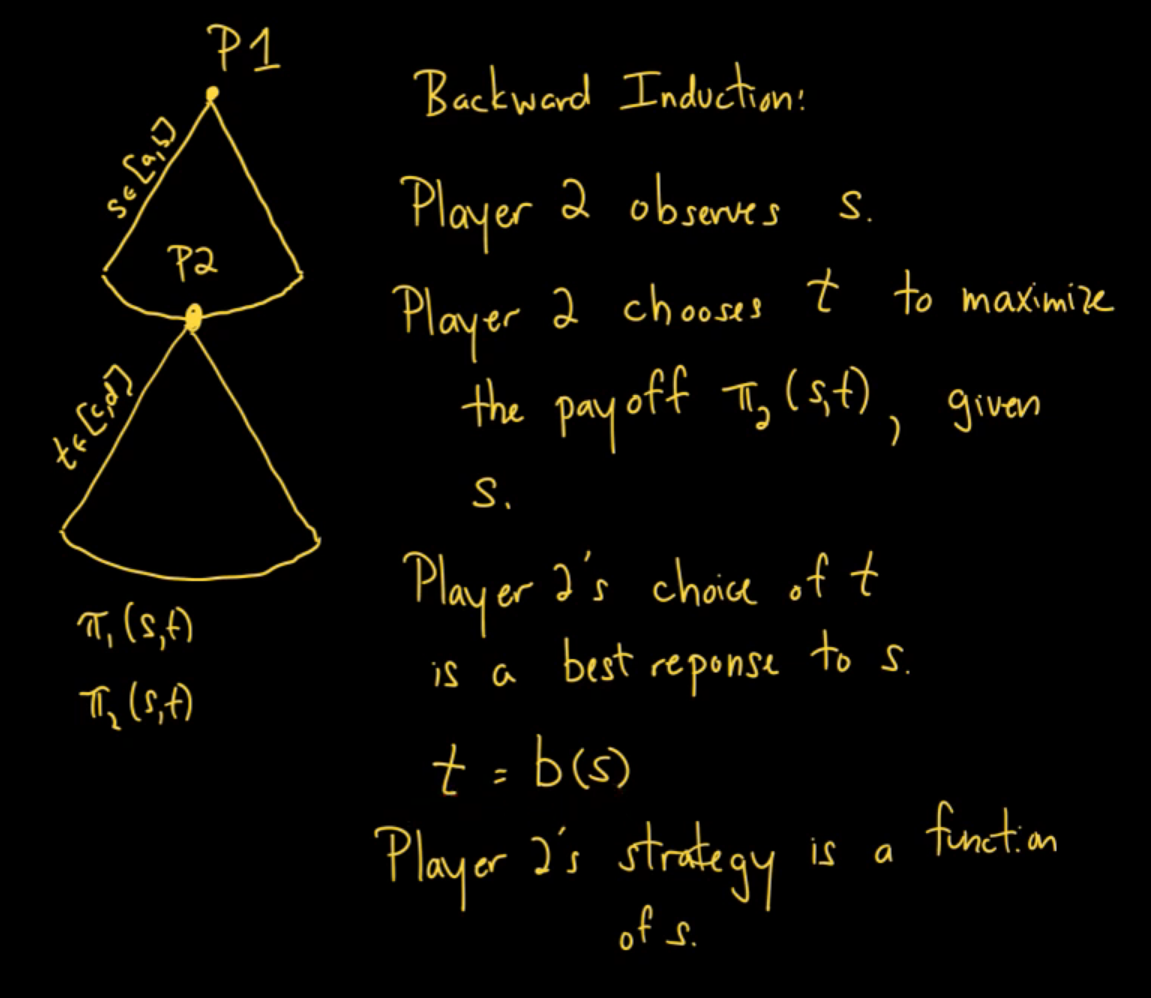 P1
s∈[a,b]
P2
t∈[c,d]
π₁(s,t)
π₂(s,t)
Backward Induction:
Player 2 observes s.
Player 2 chooses t to maximize
the payoff π₂(s,t), given
s.
Player 2's choice of t
is a best reponse to s.
t = b(s)
Player 2's strategy is a function
of s.